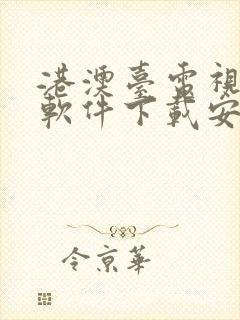 港澳臺電視
軟件下載安
令京華